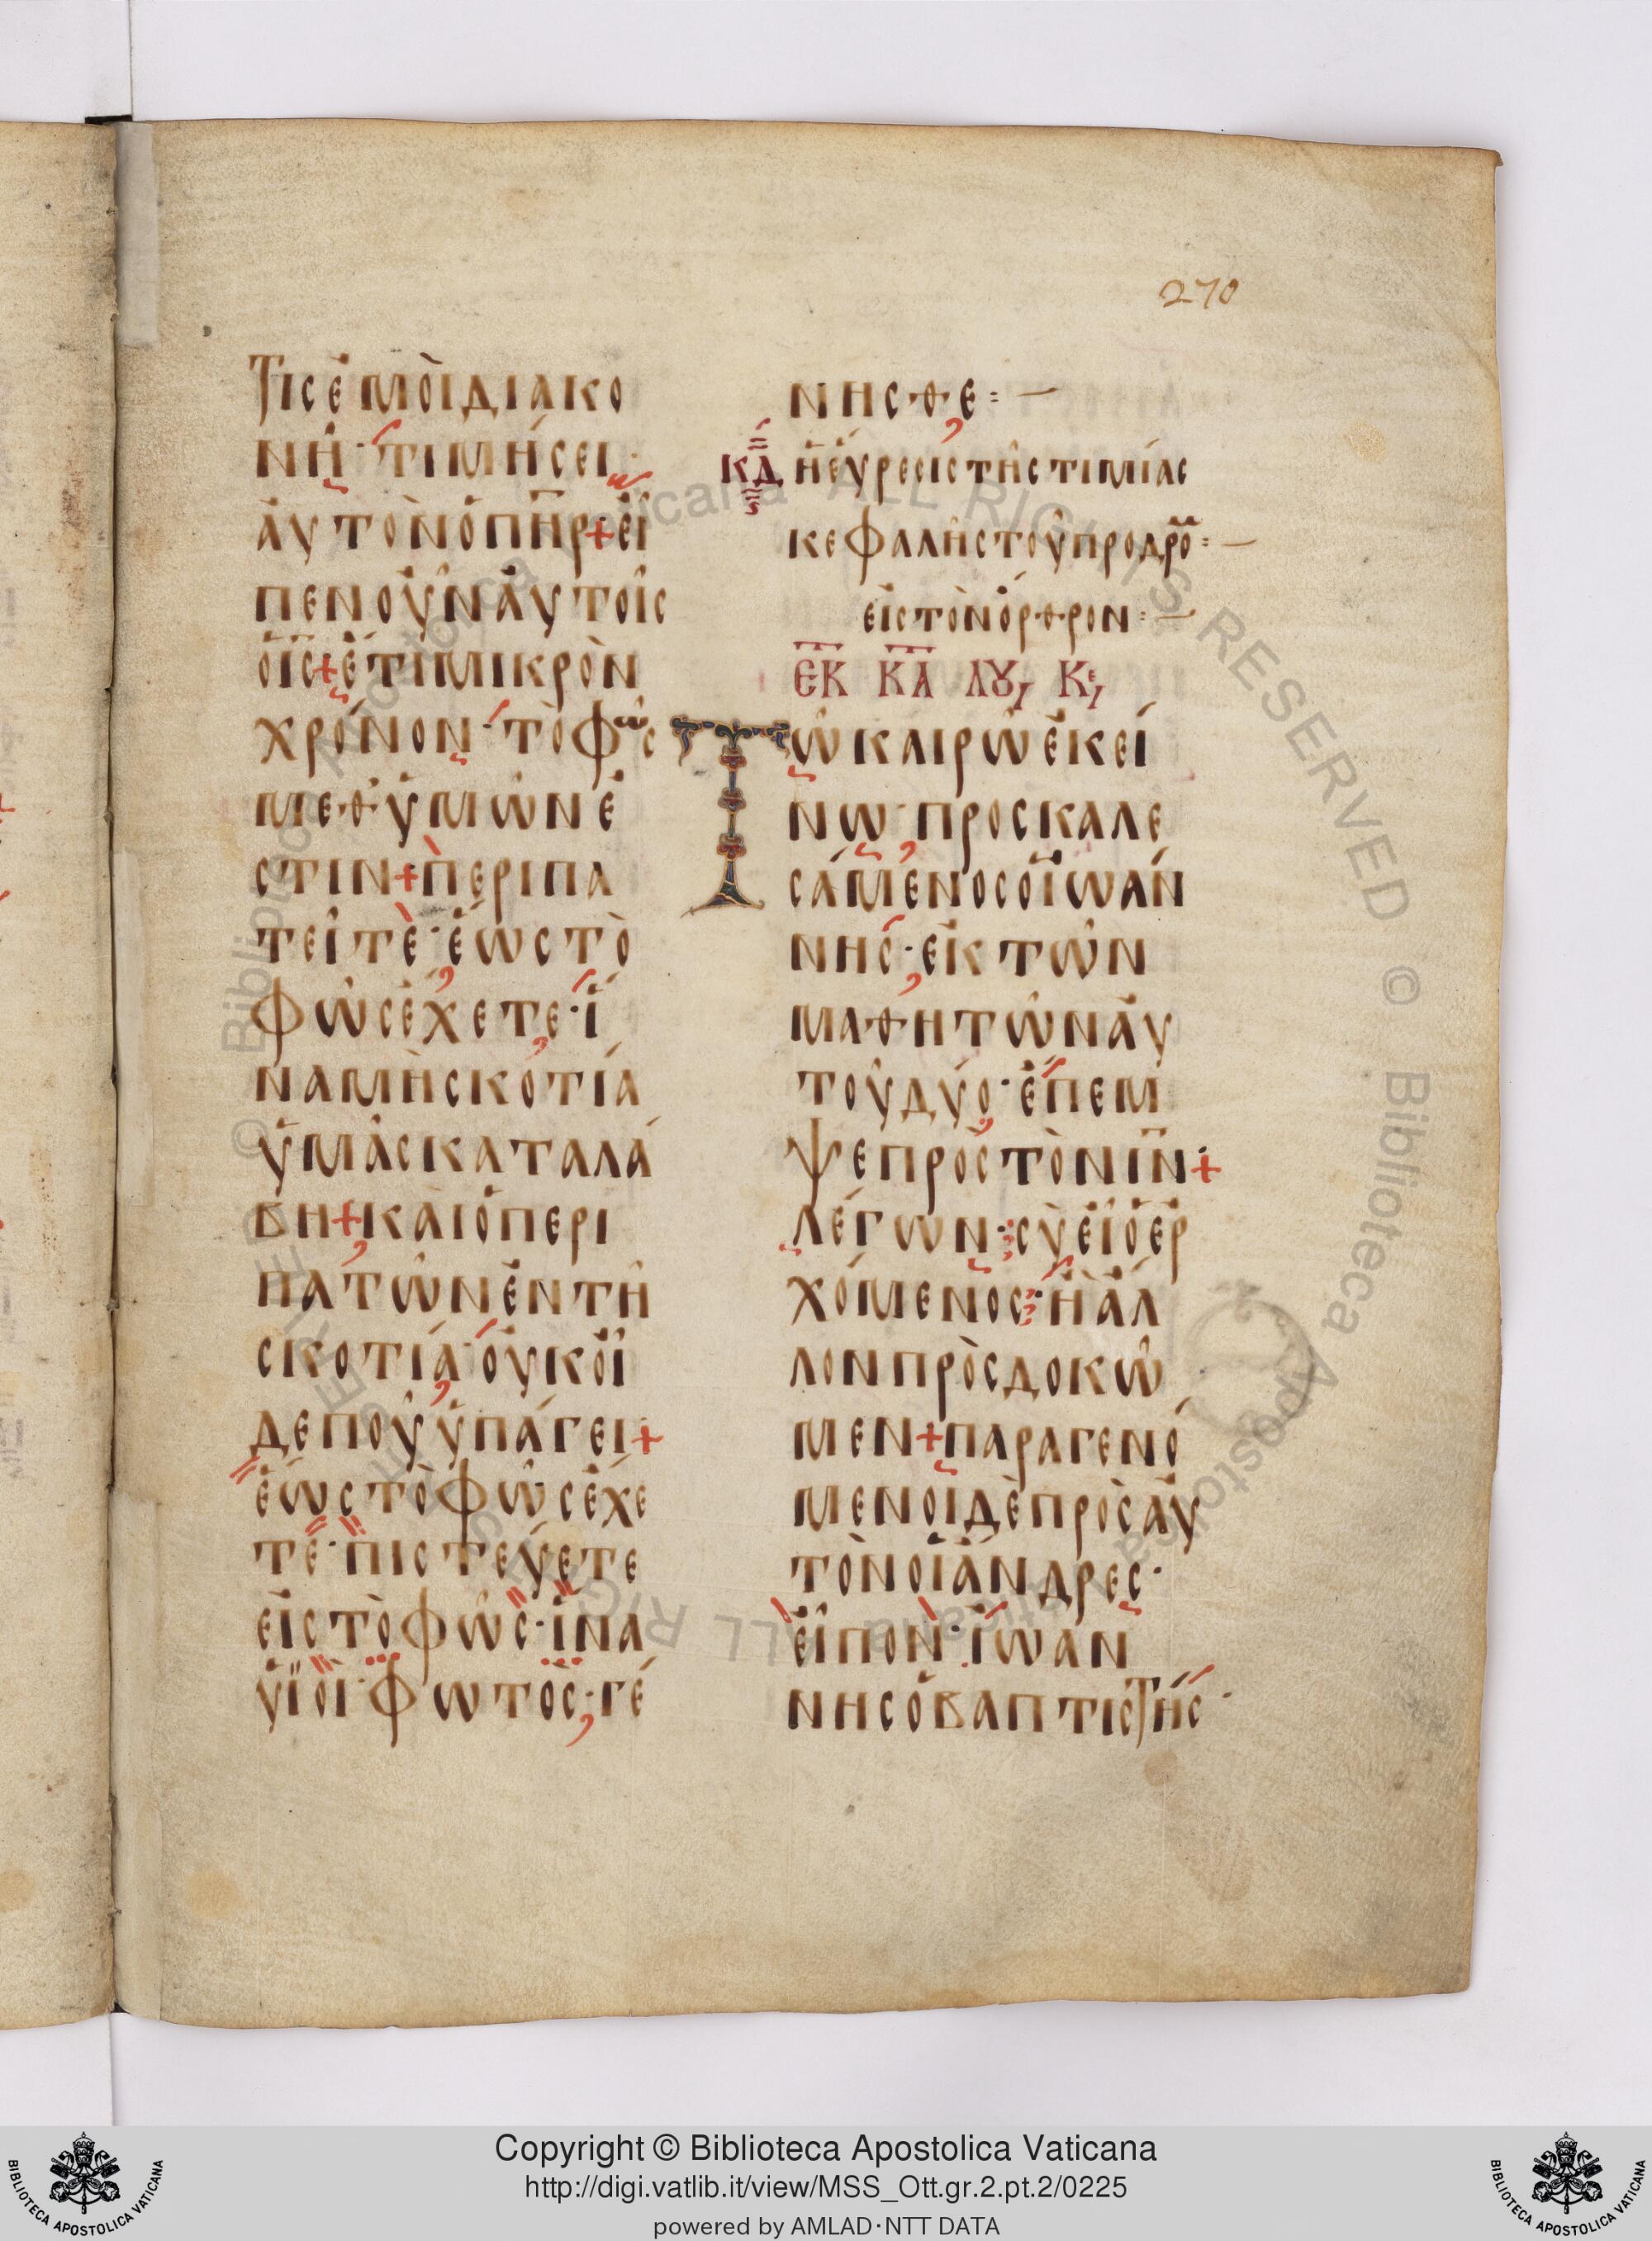 270
Τις ἐμοὶ διακο
νῆ· τιμήσει
ἀυτὸν ὁ π̅η̅ρ̅ + εἶ
πεν οὖν ἀυτοῖς
ὁ ι̅ς̅ + ἔτι μικρὸν
χρόνον· τὸ φῶς
μεθ' ὑμῶν ἐ
στιν + περιπα
τεῖτε· ἕως τὸ
φῶς ἔχετε· ἵ
να μὴ σκοτία
ὑμᾶς καταλά
βη + καὶ ὁ περι
πατῶν ἐν τῆ
σκοτία· οὐκ οἶ
δε ποῦ ὑπάγει +
ἕως τὸ φῶς ἔχε
τε· πιστεύετε
εἰς τὸ φῶς· ἵνα
υἱοὶ φωτὸς· γέ
νησθε :—
κδ ἡ εὕρεσις τῆς τιμίας
κεφαλῆς τοῦ προδρό :—
εἰς τὸν ὄρθρον :—
ἐκ κ̅α̅ λου, κε,
Τῶ καιρῶ ἐκεί
νω· προσκαλε
σάμενος ὁ ἰωάν
νης· ἐκ τῶν
μαθητῶν ἀυ
τοῦ δύο· ἔπεμ
ψε πρὸς τὸν ι̅ν̅ +
λέγων· σὺ εἶ ὁ ἐρ
χόμενος· ἢ ἄλ
λον πρὸσδοκῶ
μεν + παραγενό
μενοι δὲ πρὸς ἀυ
τὸν οἱ ἄνδρες·
εἶπον· ἰωάν
νης ὁ βαπτιστής·
Copyright © Biblioteca Apostolica Vaticana
http://digi.vatlib.it/view/MSS_Ott.gr.2.pt.2/0225
powered by AMLAD·NTT DATA
BIBLIOTECA APOSTOLICA VATICANA
BIBLIOTECA APOSTOLICA VATICANA